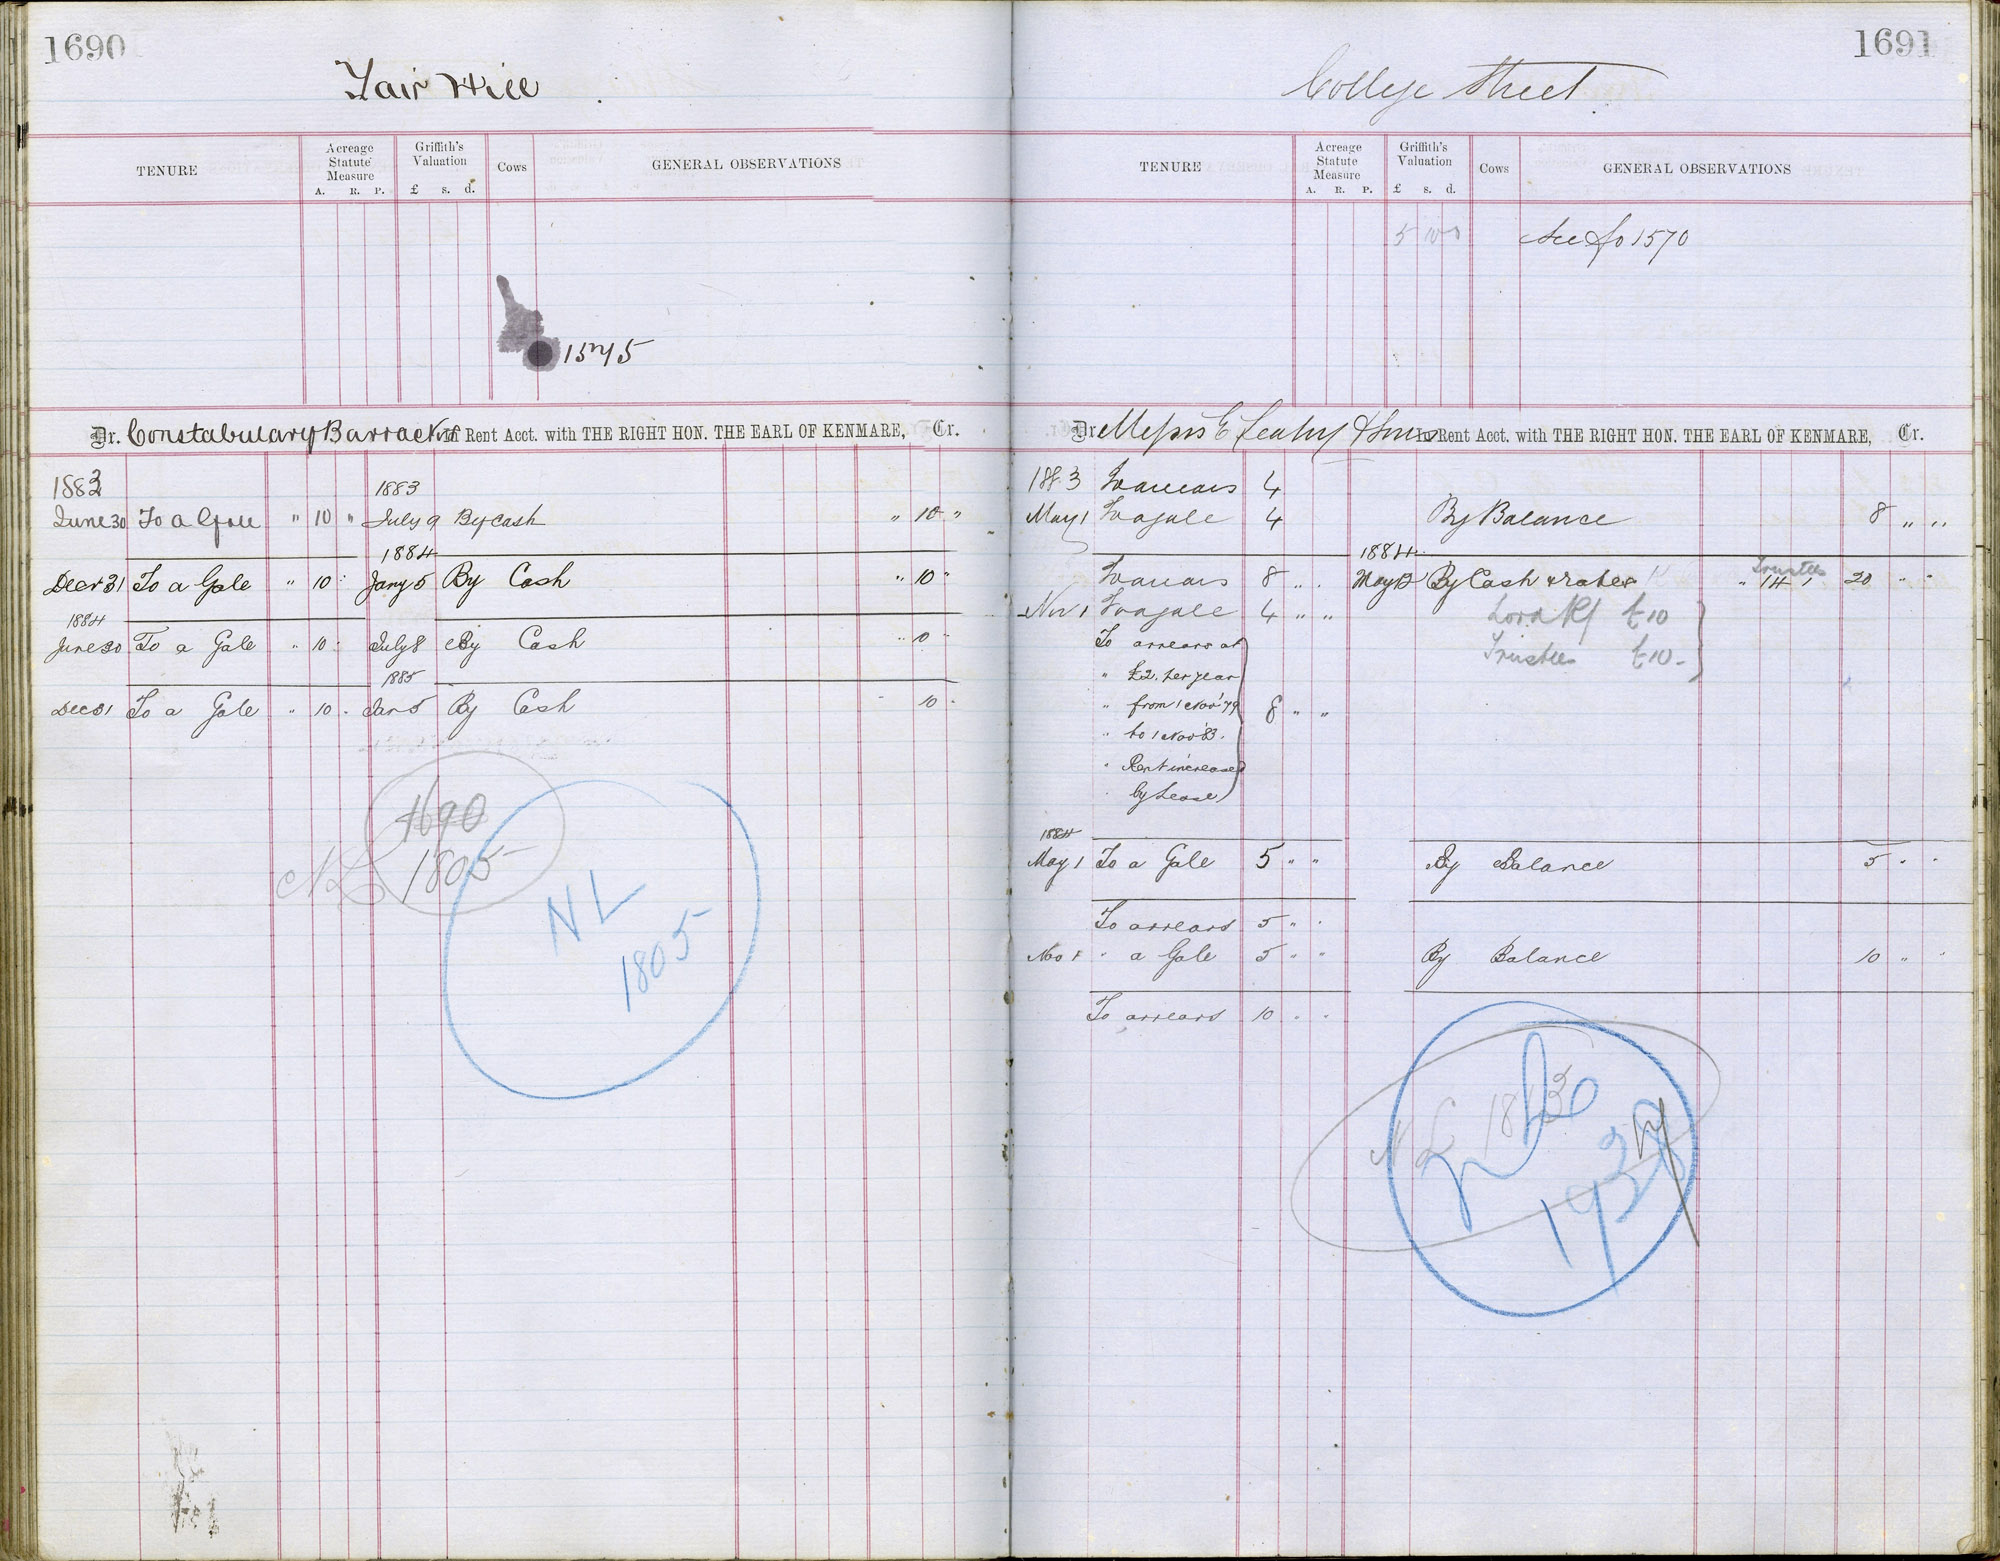 1690
Fair Hill
TENURE
Acreage Statute Measure
A. R. P.
Griffith's Valuation
£ s. d.
Cows
GENERAL OBSERVATIONS
1575
Dr. Constabulary Barrack in Rent Acct. with THE RIGHT HON. THE EARL OF KENMARE, Cr.
1883 1883
June 30 To a Gale " 10 " July 9 By Cash " 10 "
1884
Decr 31 To a Gale " 10 " Jany 5 By Cash " 10 "
1884
June 30 To a Gale " 10 " July 8 By Cash " 10 "
1885
Dec 31 To a Gale " 10 " Jan 5 By Cash " 10 "
1690
NL 1805
NL
1805
1691
College Street
TENURE
Acreage Statute Measure
A. R. P.
Griffith's Valuation
£ s. d.
Cows
GENERAL OBSERVATIONS
5 10 0 See fo 1570
Dr. Messrs E Leahy & Sons In Rent Acct. with THE RIGHT HON. THE EARL OF KENMARE, Cr.
1883 To arrears 4
May 1 To a gale 4 By Balance 8 " "
1884
To arrears 8 " " May 12 By Cash & rates " 14 1 20 " "
Trustees
Nov 1 To a gale 4 " " Lord K £10
To arrears at Trustees £10
" £2 per year
" from 1 Nov '79 8 " "
" to 1 Nov '83.
" Rent increased
by Lease
1884
May 1 To a Gale 5 " " By Balance 5 " "
To arrears 5 " "
Nov 1 " a Gale 5 " " By Balance 10 " "
To arrears 10 " "
NL 18